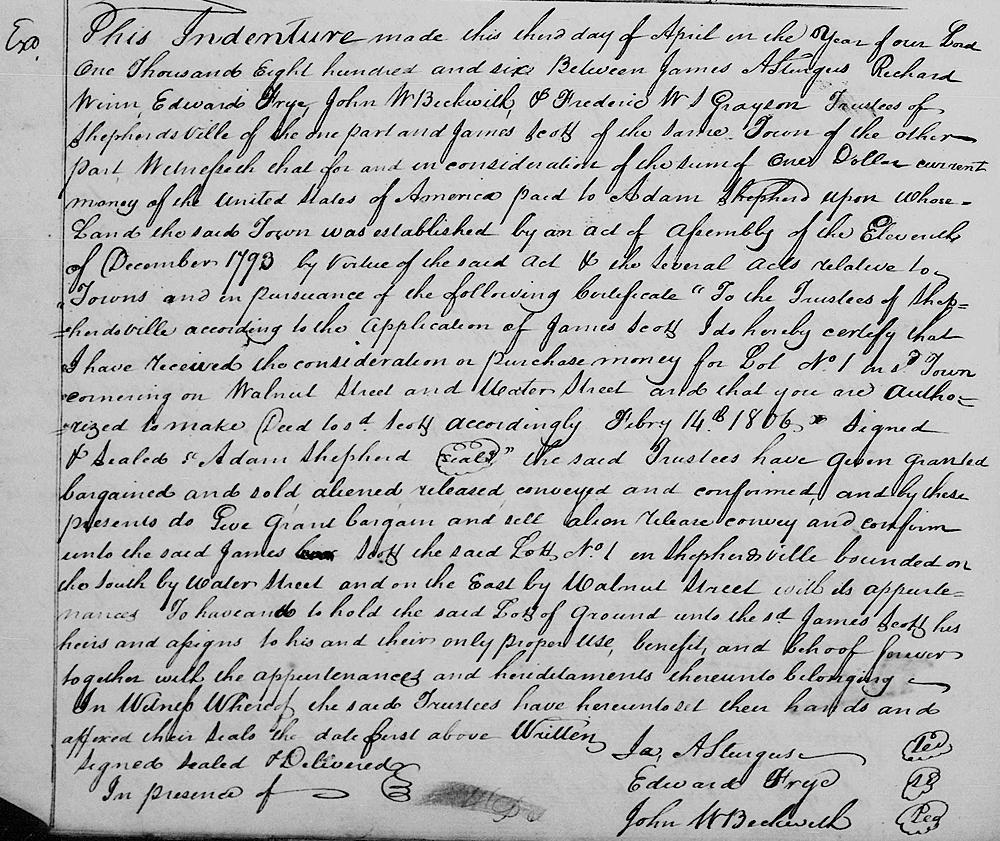 Exd.
This Indenture made this third day of April in the Year of our Lord
One Thousand Eight hundred and six Between James A Sturgus Richard
Winn, Edward Frye, John W Beckwith, & Frederic W S Grayson Trustees of
Shepherdsville of the one part and James Scott of the same Town of the other
part, Witnesseth that for and in consideration of the sum of One Dollar current
money of the United States of America paid to Adam Shepherd upon whose =
Land the said Town was established by an act of Assembly of the Eleventh
of December 1793 by Virtue of the said Act & the several acts relative to
Towns and in pursuance of the following Certificate "To the Trustees of Shep=
=herdsville according to the Application of James Scott I do hereby certify that
I have received the consideration or purchase money for Lot No. 1 in sd. Town
cornering on Walnut Street and Water Street and that you are autho=
=rized to make Deed to sd Scott accordingly Febry 14th 1806 " Signed
& Sealed "Adam Shepherd Seal" the said Trustees have Given granted
bargained and sold aliened released conveyed and confirmed, and by these
presents do Give Grant bargain and sell alien release convey and confirm
unto the said James Scott the said Lott No 1 in Shepherdsville bounded on
the South by Water Street and on the East by Walnut Street with its appurte=
nances To have and to hold the said Lott of Ground unto the sd James Scott his
heirs and assigns to his and their only proper Use, benefit, and behoof forever
together with the appurtenances and hereditaments thereunto belonging
In Witness Whereof the said Trustees have hereunto set their hands and
affixed their Seals the date first above Written
Signed Sealed & Delivered
In presence of
Ja, A Sturgus
Edward Frye
John W Beckwith